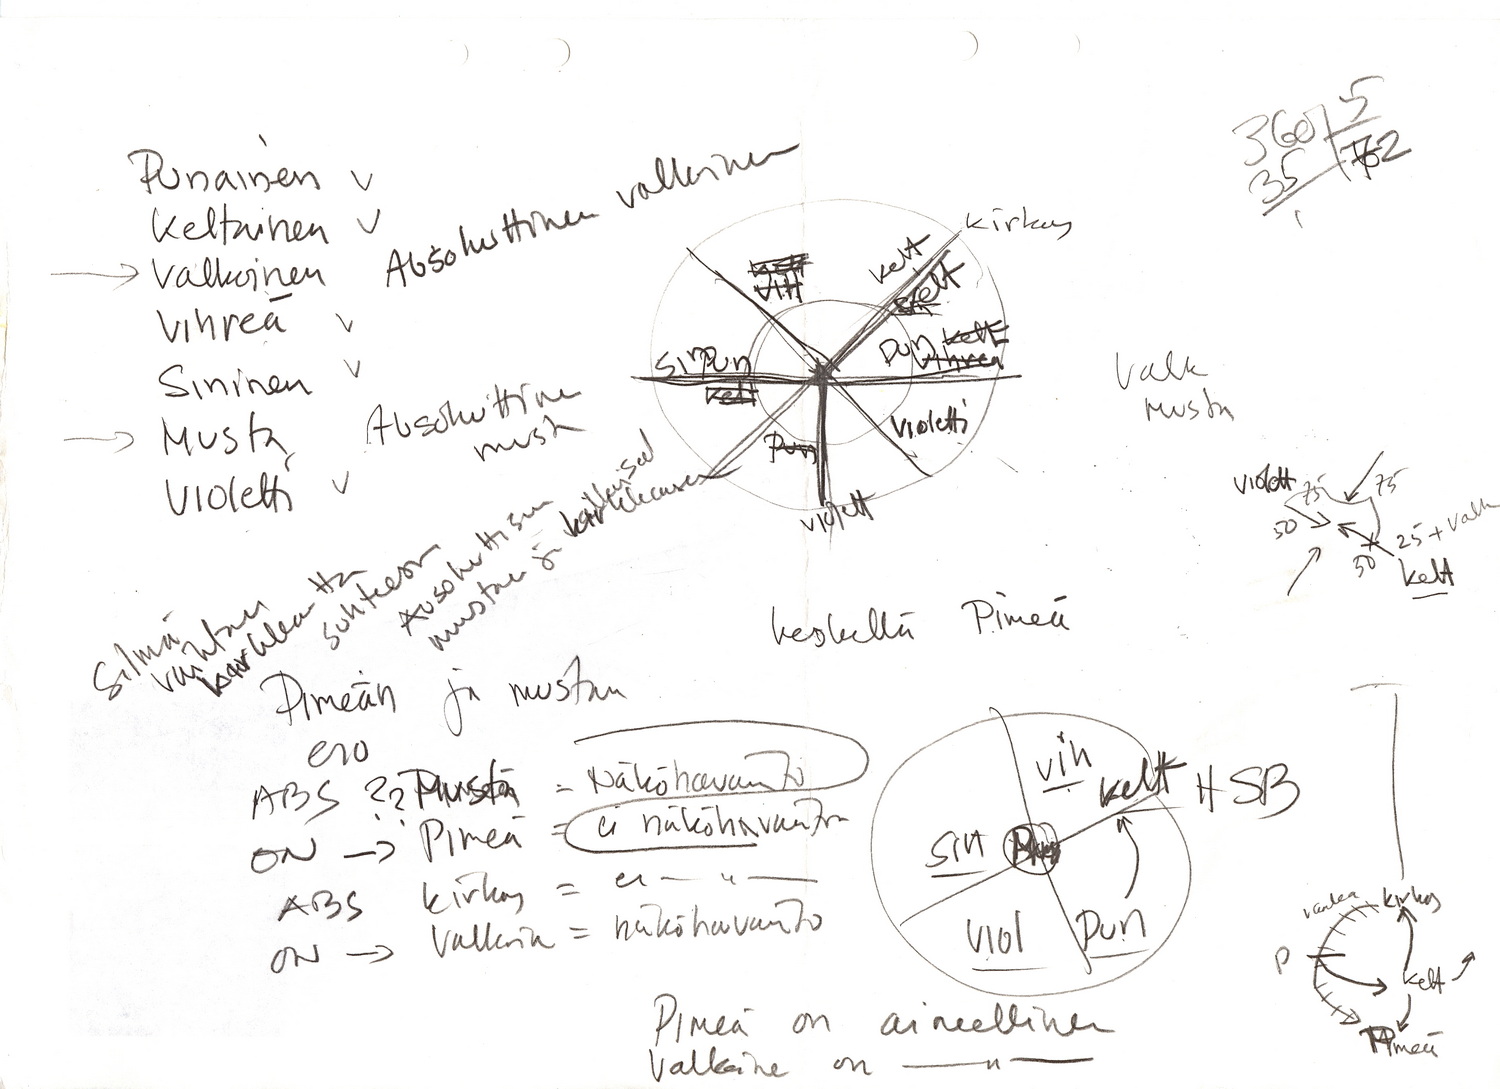 Punainen v
Keltainen v
→ Valkoinen Absoluuttinen valkoinen
Vihreä v
Sininen v
→ Musta Absoluuttine
musta
Violetti v
360 5
35 72
1
kirkas
kelt
kelt
Sin Pun
Pun kelt
Vihreä
kelt
Violetti
Pun
violett
Valk
musta
violett 75 75
50
25 + valk
50
kelt
Silmä
suhteessa
Absoluuttisen
mustan ja
keskellä Pimeä
Pimeän ja mustan
ero
ABS ?? Musta = Näköhavainto
ON → Pimeä = ei näköhavainto
ABS kirkas = ei — " —
ON → Valkoin = näköhavainto
vih
kelt HSB
sin
viol pun
kirkas
P
kelt
Pimeä
Pimeä on aineellinen
Valkoine on — " —